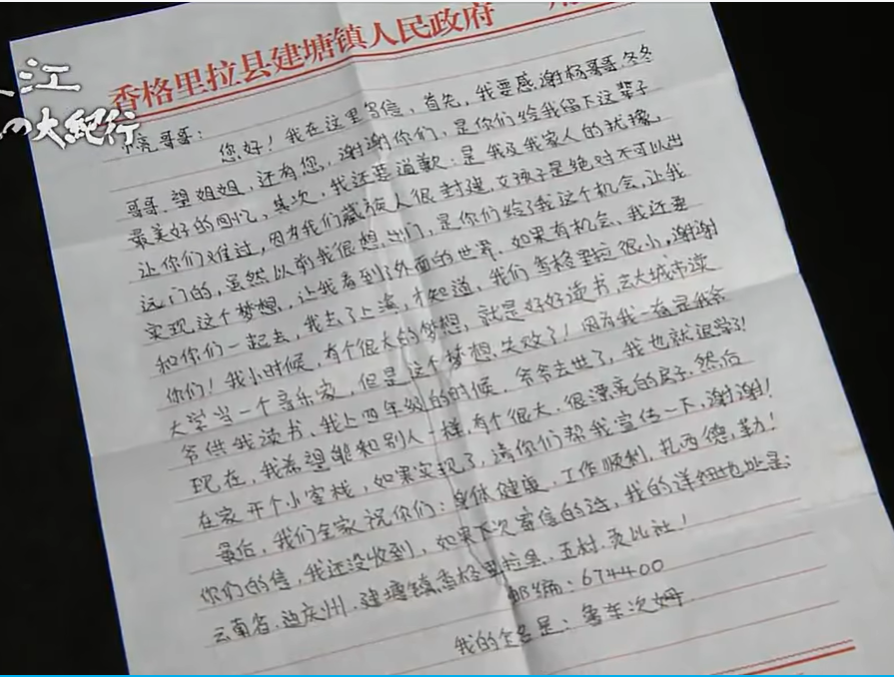 香格里拉县建塘镇人民政府
江
の大紀行
亮哥哥：
您好！我在这里写信，首先，我要感谢杨哥哥、冬冬
哥哥、望姐姐，还有您，谢谢你们，是你们给我留下这辈子
最美好的回忆，其次，我还要道歉：是我及我家人的犹豫，
让你们难过，因为我们藏族人很封建，女孩子是绝对不可以出
远门的，虽然以前我很想出门，是你们给了我这个机会，让我
实现这个梦想，让我看到了外面的世界，如果有机会，我还要
和你们一起去，我去了上海，才知道，我们香格里拉很小，谢谢
你们！我小时候，有个很大的梦想，就是好好读书，去大城市读
大学当一个音乐家，但是这个梦想，失败了！因为我一直是我爷
爷供我读书、我上四年级的时候，爷爷去世了，我也就退学了！
现在，我希望能和别人一样，有个很大、很漂亮的房子，然后
在家开个小客栈，如果实现了，请你们帮我宣传一下，谢谢！
最后，我们全家祝你们：身体健康，工作顺利，扎西德勒！
你们的信，我还没收到，如果下次寄信的话，我的详细地址是：
云南省、迪庆州、建塘镇、香格里拉县、五村、
社！
邮编：674400
我的全名是：
车次姆